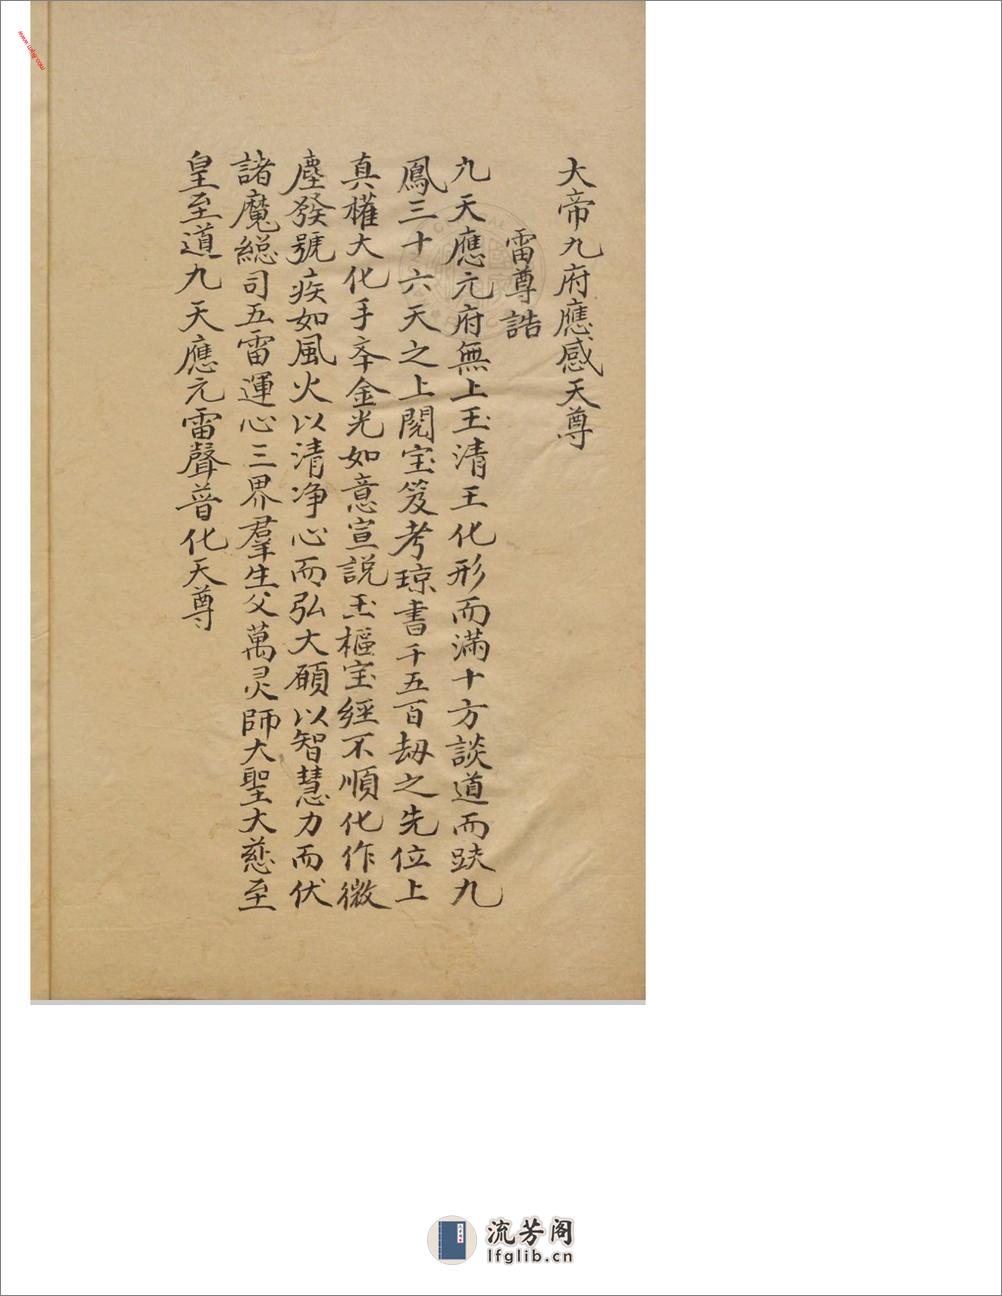 大帝九府應感天尊
雷尊誥
九天應元府無上玉清王化形而滿十方談道而趺九
鳳三十六天之上閱宝笈考琼書千五百劫之先位上
真權大化手夲金光如意宣説玉樞宝經不順化作微
塵發號疾如風火以清净心而弘大願以智慧力而伏
諸魔総司五雷運心三界羣生父萬灵師大聖大慈至
皇至道九天應元雷聲普化天尊
流芳阁
lfglib.cn